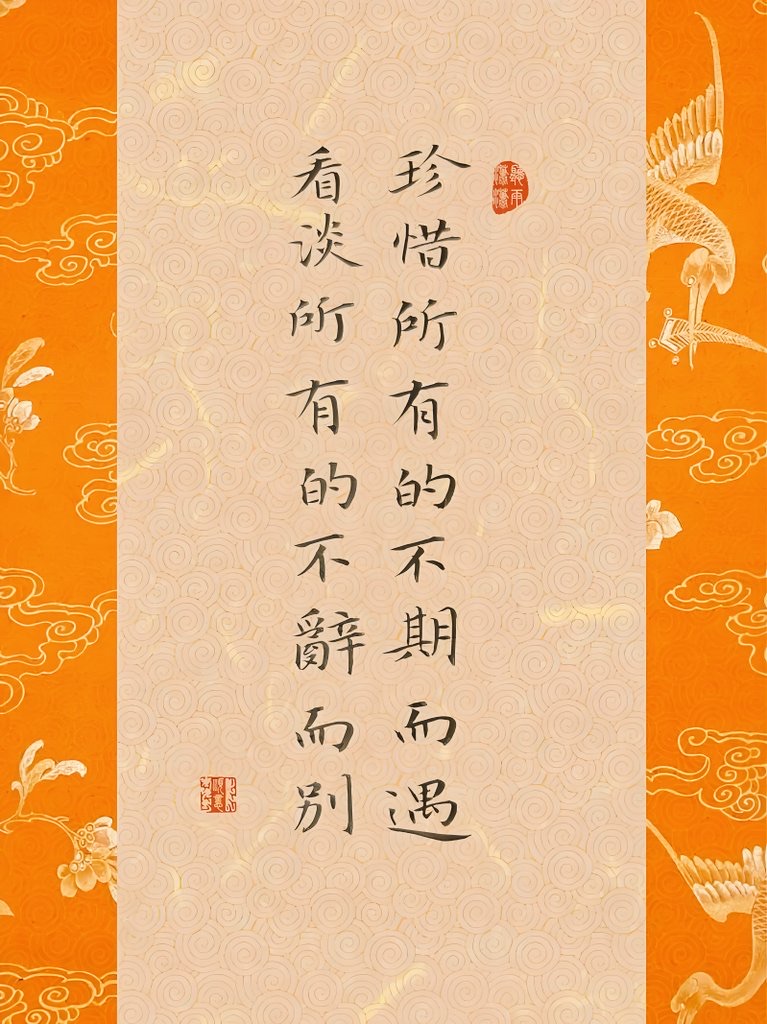 珍惜所有的不期而遇
看淡所有的不辭而別
聽雨